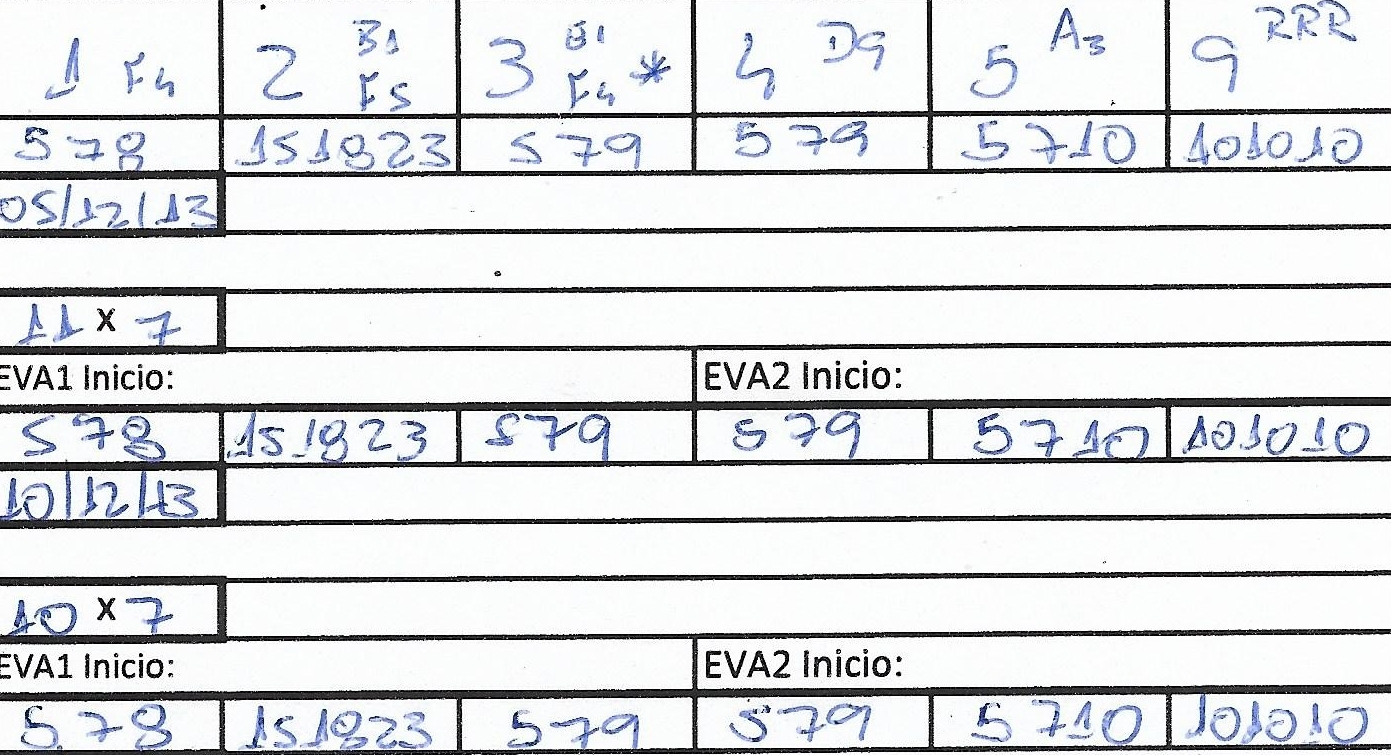 1 F4 2 B1 F5 3 B1 F4 * 4 D9 5 A3 9 RRR
578 151823 579 579 5710 101010
05/12/13
11 x 7
EVA1 Inicio: EVA2 Inicio:
578 151823 579 579 5710 101010
10/12/13
10 x 7
EVA1 Inicio: EVA2 Inicio:
578 151823 579 579 5710 101010